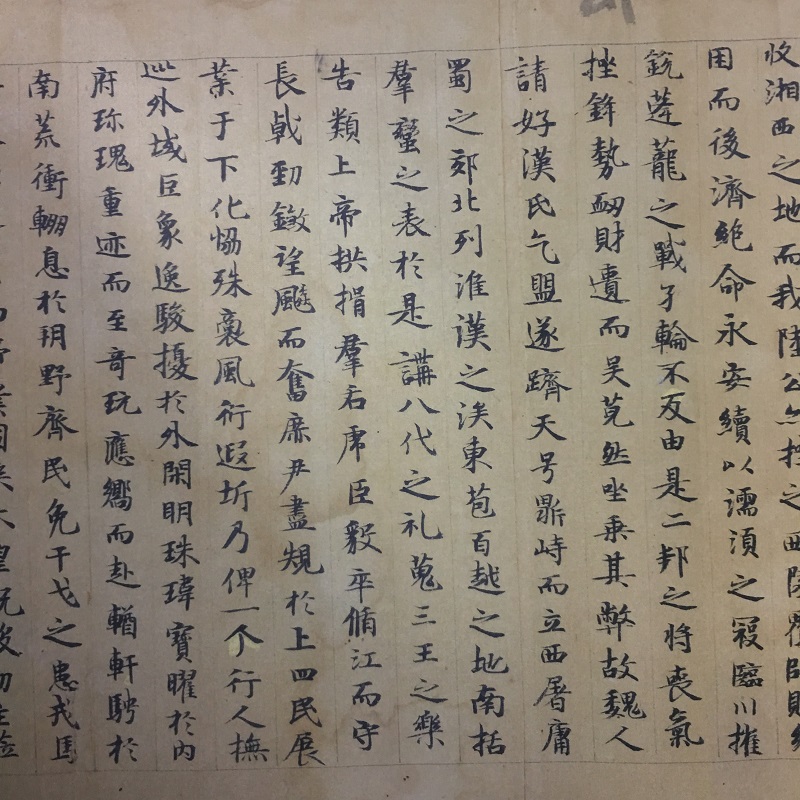 收湘西之地而我陸公亦挫之西陵覆師敗績
困而後濟絶命永安續以濡須之寇臨川摧
銳蓬蘢之戰孑輪不反由是二邦之將喪氣
挫鋒勢衂財遺而吳莞然坐乗其弊故魏人
請好漢氏乞盟遂躋天号鼎峙而立西屠庸
蜀之郊北列淮漢之涘東苞百越之地南括
羣蠻之表於是講八代之礼蒐三王之樂
告類上帝拱揖羣后虎臣毅卒循江而守
長戟勁鎩望飈而奮庶尹盡規於上四民展
業于下化恊殊裔風衍遐圻乃俾一个行人撫
巡外域巨象逸駿擾於外閑明珠瑋寶曜於内
府珎瑰重迹而至奇玩應嚮而赴輶軒騁於
南荒衝輣息於朔野齊民免干戈之患戎馬